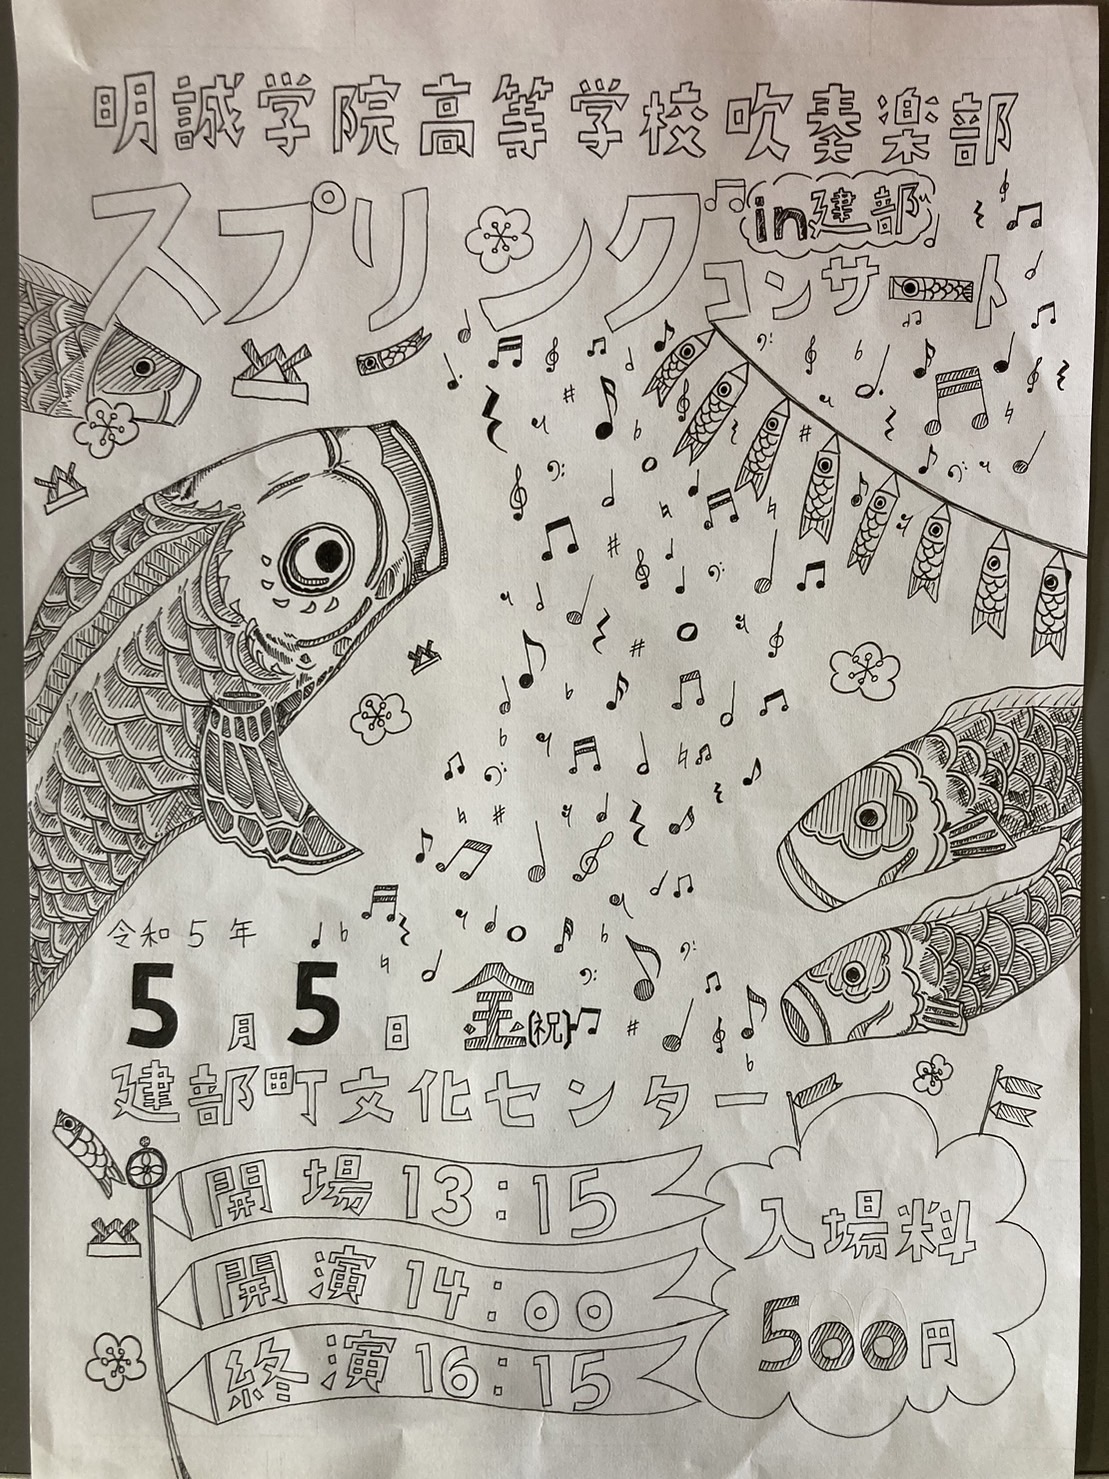 明誠学院高等学校吹奏楽部
スプリング
in建部
コンサート
令和5年
5月5日 金(祝)
建部町文化センター
開場 13:15
開演 14:00
終演 16:15
入場料
500円